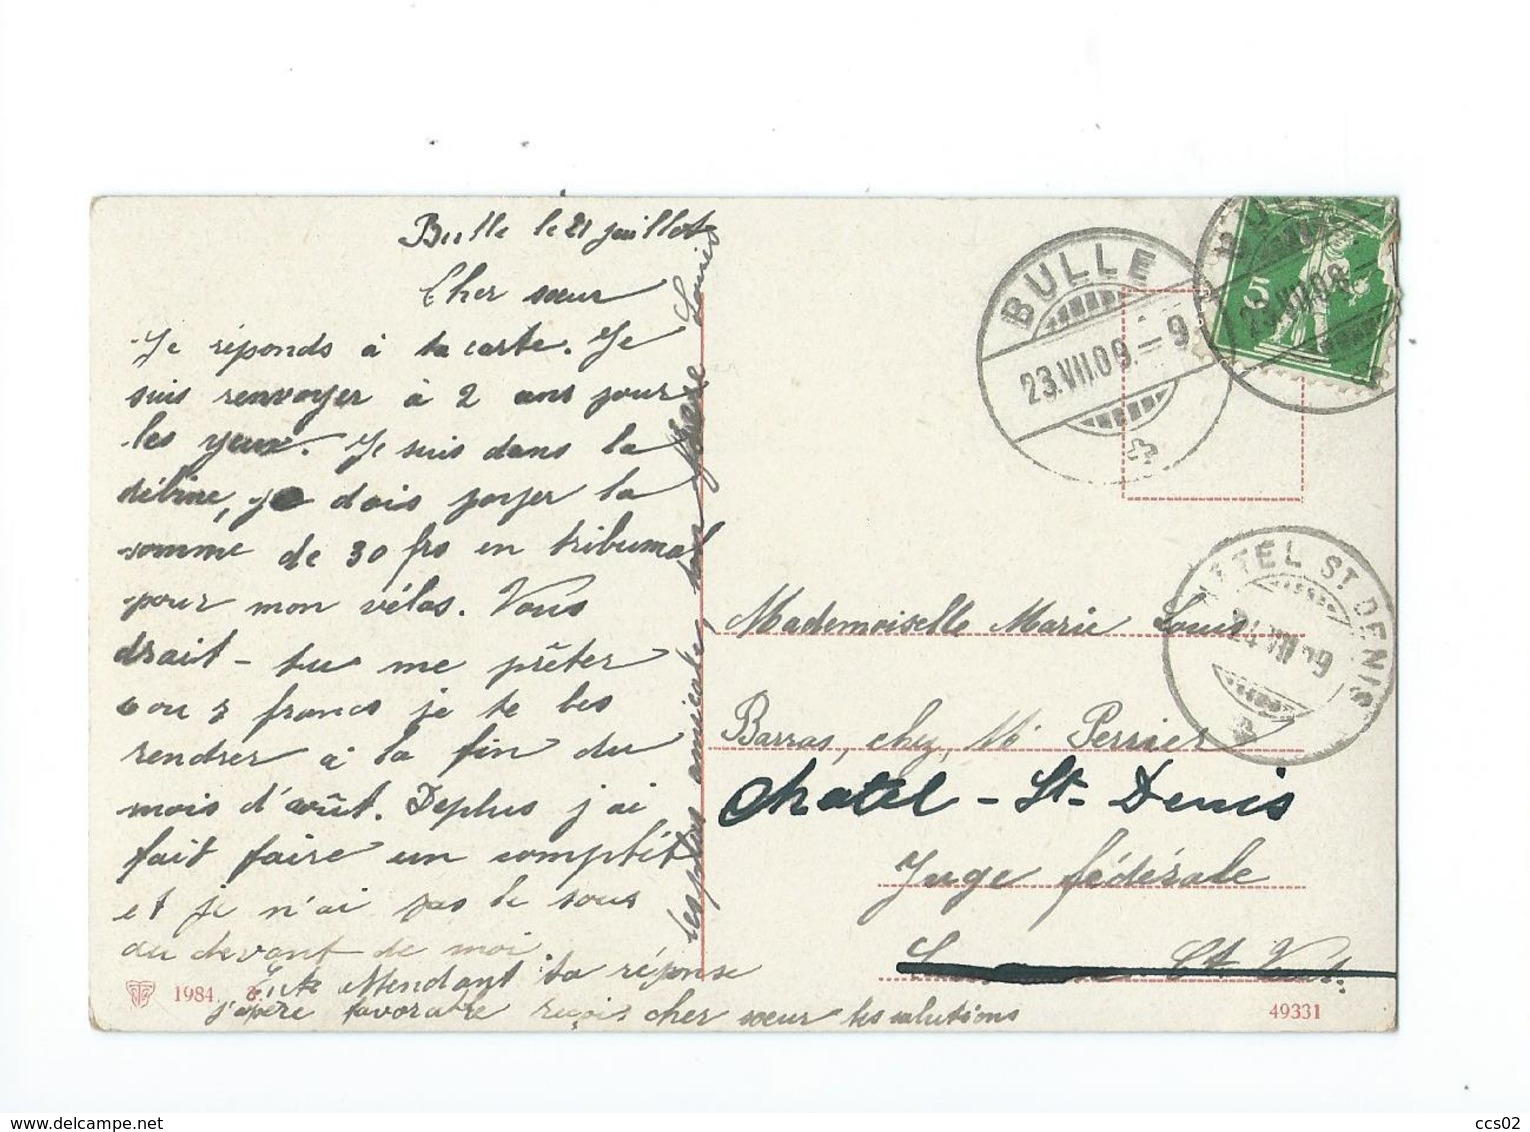 Bulle le 21 juillet
Cher sœur
Je réponds à ta carte. Je
suis renvoyer à 2 ans pour
les yeux. Je suis dans la
débine, je dois payer la
somme de 30 frs en tribunal
pour mon vélos. Vous
drait-tu me prêter
ou 3 francs je te les
rendrer à la fin du
mois d'août. Deplus j'ai
fait faire un complèt
et je n'ai pas le sous
au devant de moi
attendant ta réponse
j'apère favorabre reçois cher sœur les salutions
les plus amicale, ton frère Louis
BULLE
23.VII.09.–9
5
CHATEL ST DENIS
24 VII 09
Mademoiselle Marie Louise
Barras, chez Mr Perrier
Chatel-St-Denis
Juge fédérale
1984
49331
ccs02